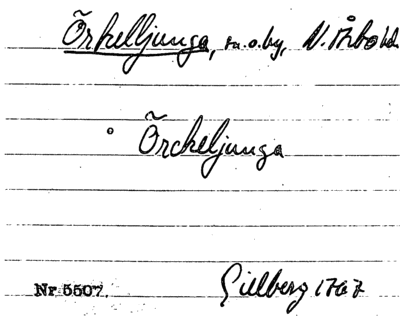 Örkelljunga, sn.o.by, N. Åsbo hd.
° Örckeljunga
Nr 5507. Gillberg 1767